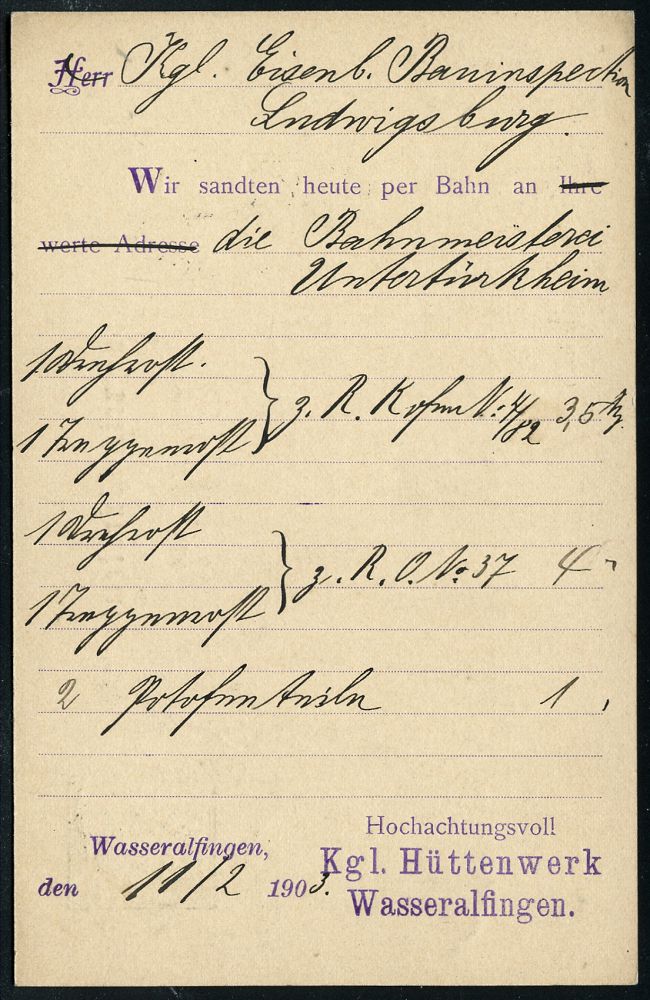 Herr Kgl. Eisenb. Bauinspection
Ludwigsburg.
Wir sandten heute per Bahn an Ihre
werte Adresse die Bahnmeisterei
Untertürkheim
1 Drehrost.
1 Treppenrost
z. R. K ofen N: 4/82 3,5
1 Drehrost
1 Treppenrost
z. R. O. No 37 4 "
2 Potofen teile 1 "
Hochachtungsvoll
Wasseralfingen,
Kgl. Hüttenwerk
den 11/2 1903.
Wasseralfingen.